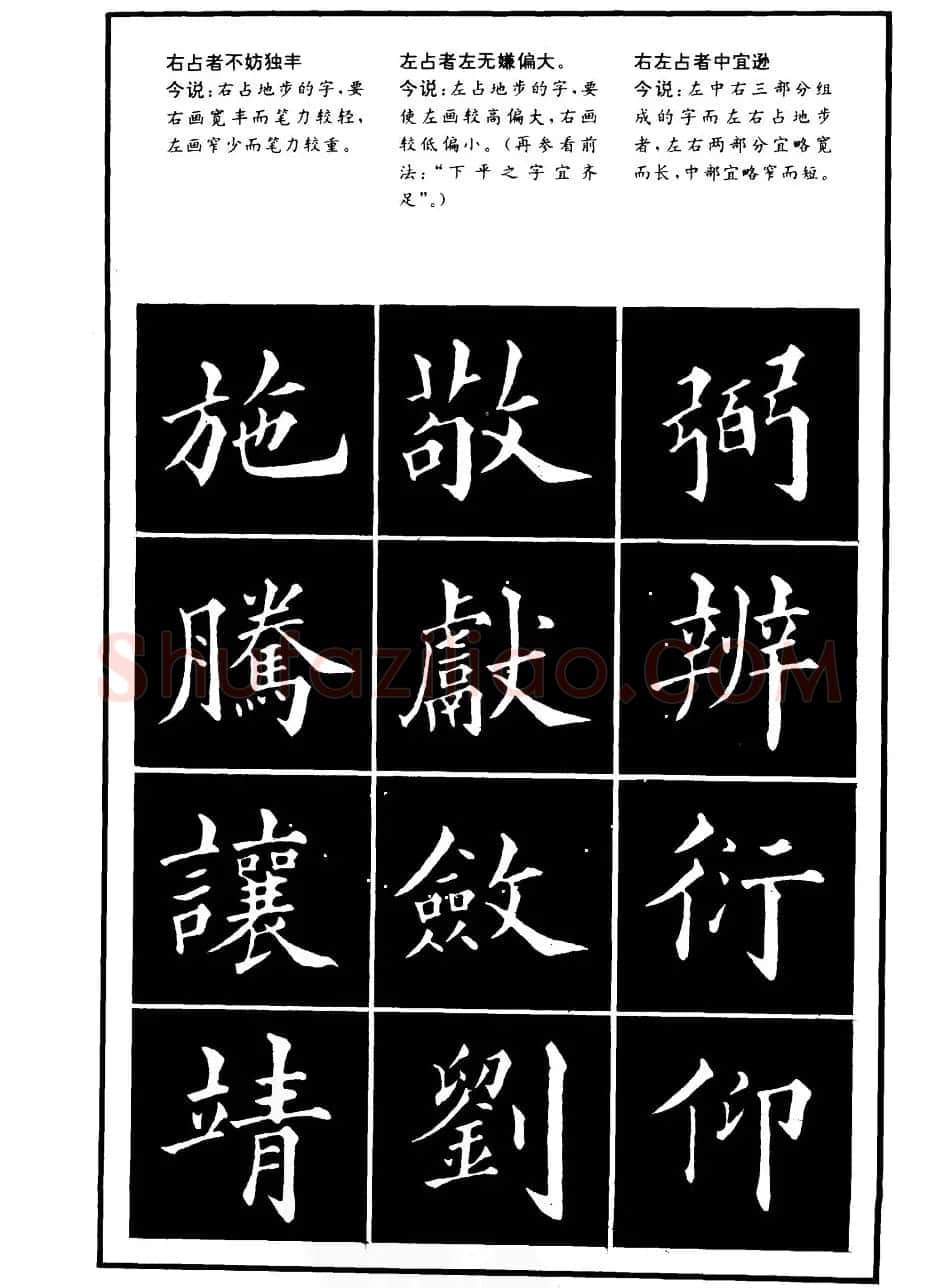 右占者不妨独丰
今说：右占地步的字，要
右画宽丰而笔力较轻，
左画窄少而笔力较重。
左占者左无嫌偏大。
今说：左占地步的字，要
使左画较高偏大，右画
较低偏小。（再参看前
法：“下平之字宜齐
足”。）
右左占者中宜逊
今说：左中右三部分组
成的字而左右占地步
者，左右两部分宜略宽
而长，中部宜略窄而短。
施
敬
弼
騰
獻
辦
讓
斂
衍
靖
劉
仰
Shufaziliao.COM